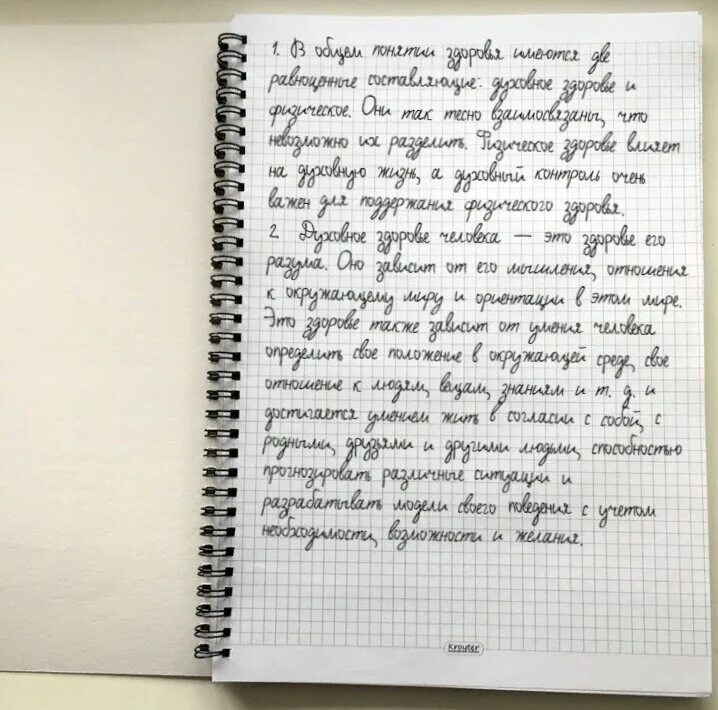 1. В общем понятии здоровья имеются две
равноценные составляющие: духовное здоровье и
физическое. Они так тесно взаимосвязаны, что
невозможно их разделить. Физическое здоровье влияет
на духовную жизнь, а духовный контроль очень
важен для поддержания физического здоровья.
2. Духовное здоровье человека — это здоровье его
разума. Оно зависит от его мышления, отношения
к окружающему миру и ориентации в этом мире.
Это здоровье также зависит от умения человека
определить свое положение в окружающей среде, свое
отношение к людям, вещам, знаниям и т. д. и
достигается умением жить в согласии с собой, с
родными, друзьями и другими людьми, способностью
прогнозировать различные ситуации и
разрабатывать модели своего поведения с учетом
необходимости, возможности и желания.
Kroyter